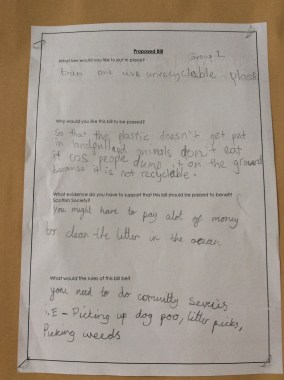 Proposed Bill
What law would you like to put in place?
Group 1
ban one use unrecyclable plastic
Why would you like this bill to be passed?
So that the plastic doesn't get put
in landfill and animals don't eat
it cos people dump it on the ground
because it is not recyclable.
What evidence do you have to support that this bill should be passed to benefit
Scottish Society?
You might have to pay alot of money
to clean the litter in the ocean
What would the rules of this bill be?
you need to do comunity
i.E - Picking up dog poo, litter picks,
Picking weeds